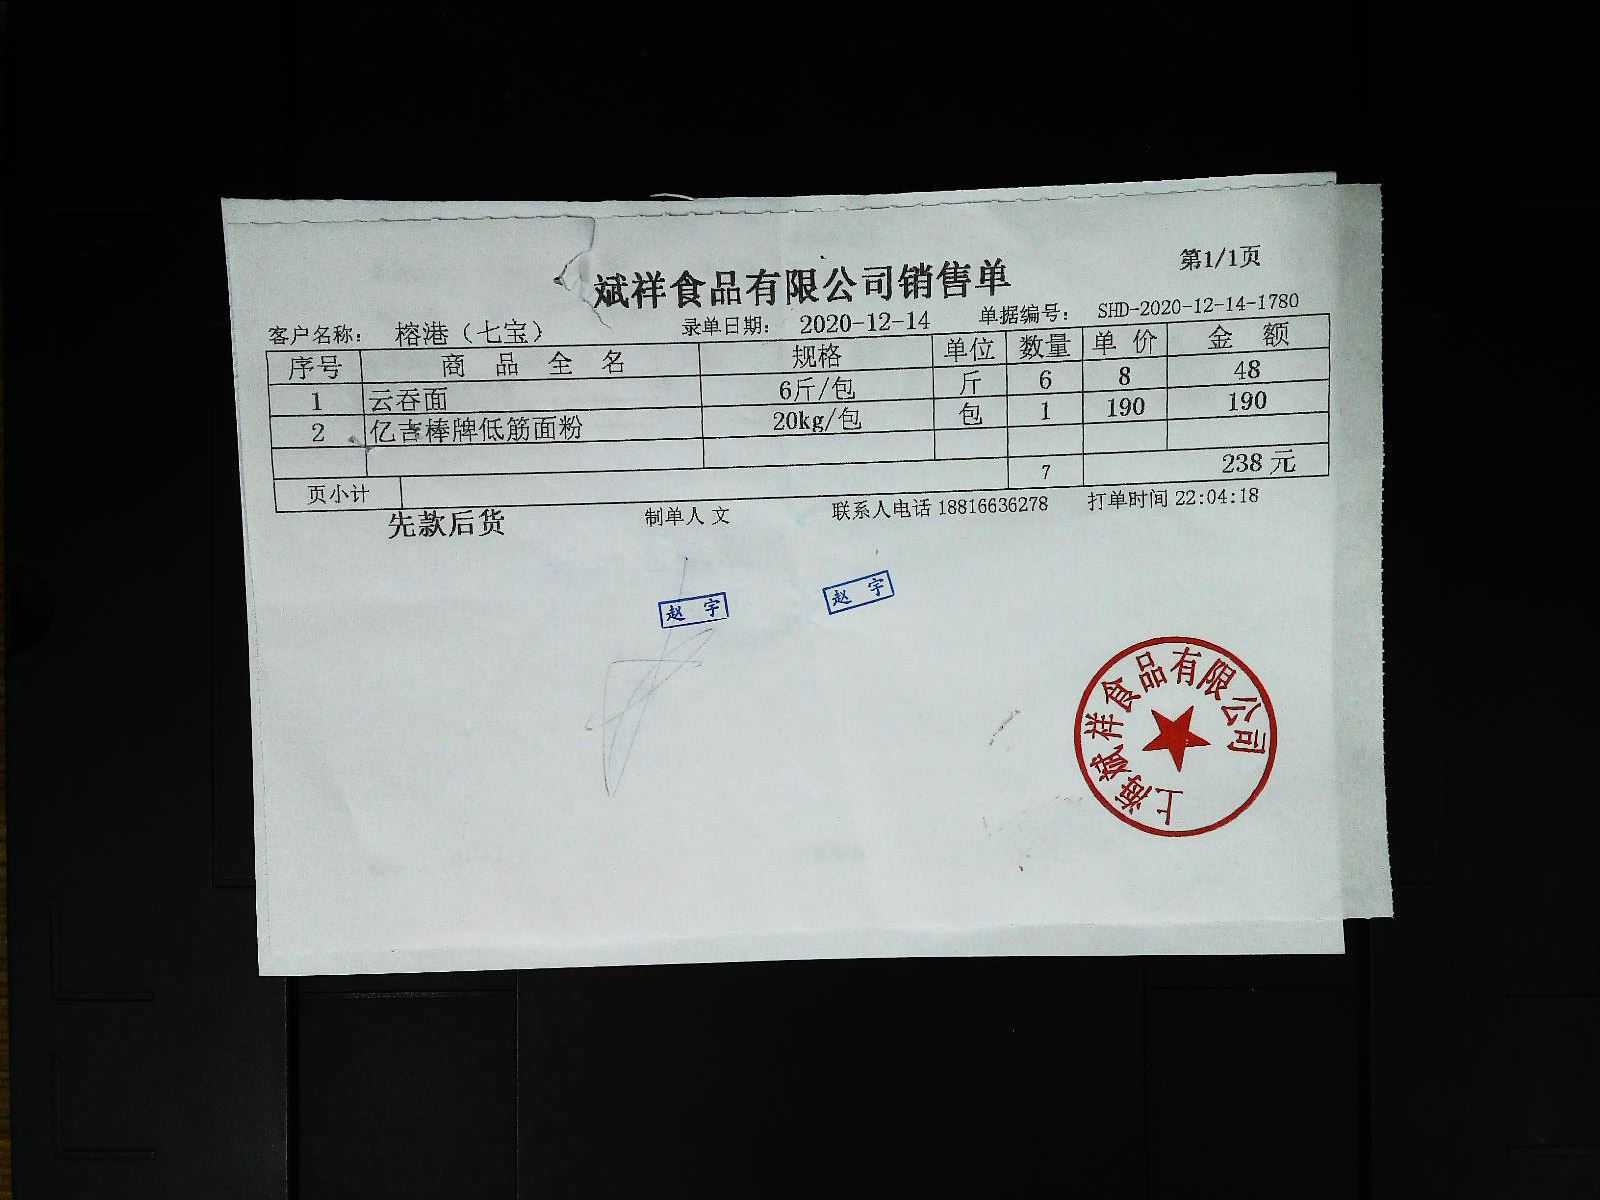 第1/1页
斌祥食品有限公司销售单
客户名称: 榕港（七宝） 录单日期: 2020-12-14 单据编号: SHD-2020-12-14-1780
序号 商品全名 规格 单位 数量 单价 金额
1 云吞面 6斤/包 斤 6 8 48
2 亿吉棒牌低筋面粉 20kg/包 包 1 190 190
页小计 7 238元
先款后货 制单人 文 联系人电话 18816636278 打单时间 22:04:18
赵宇 赵宇
上海斌祥食品有限公司